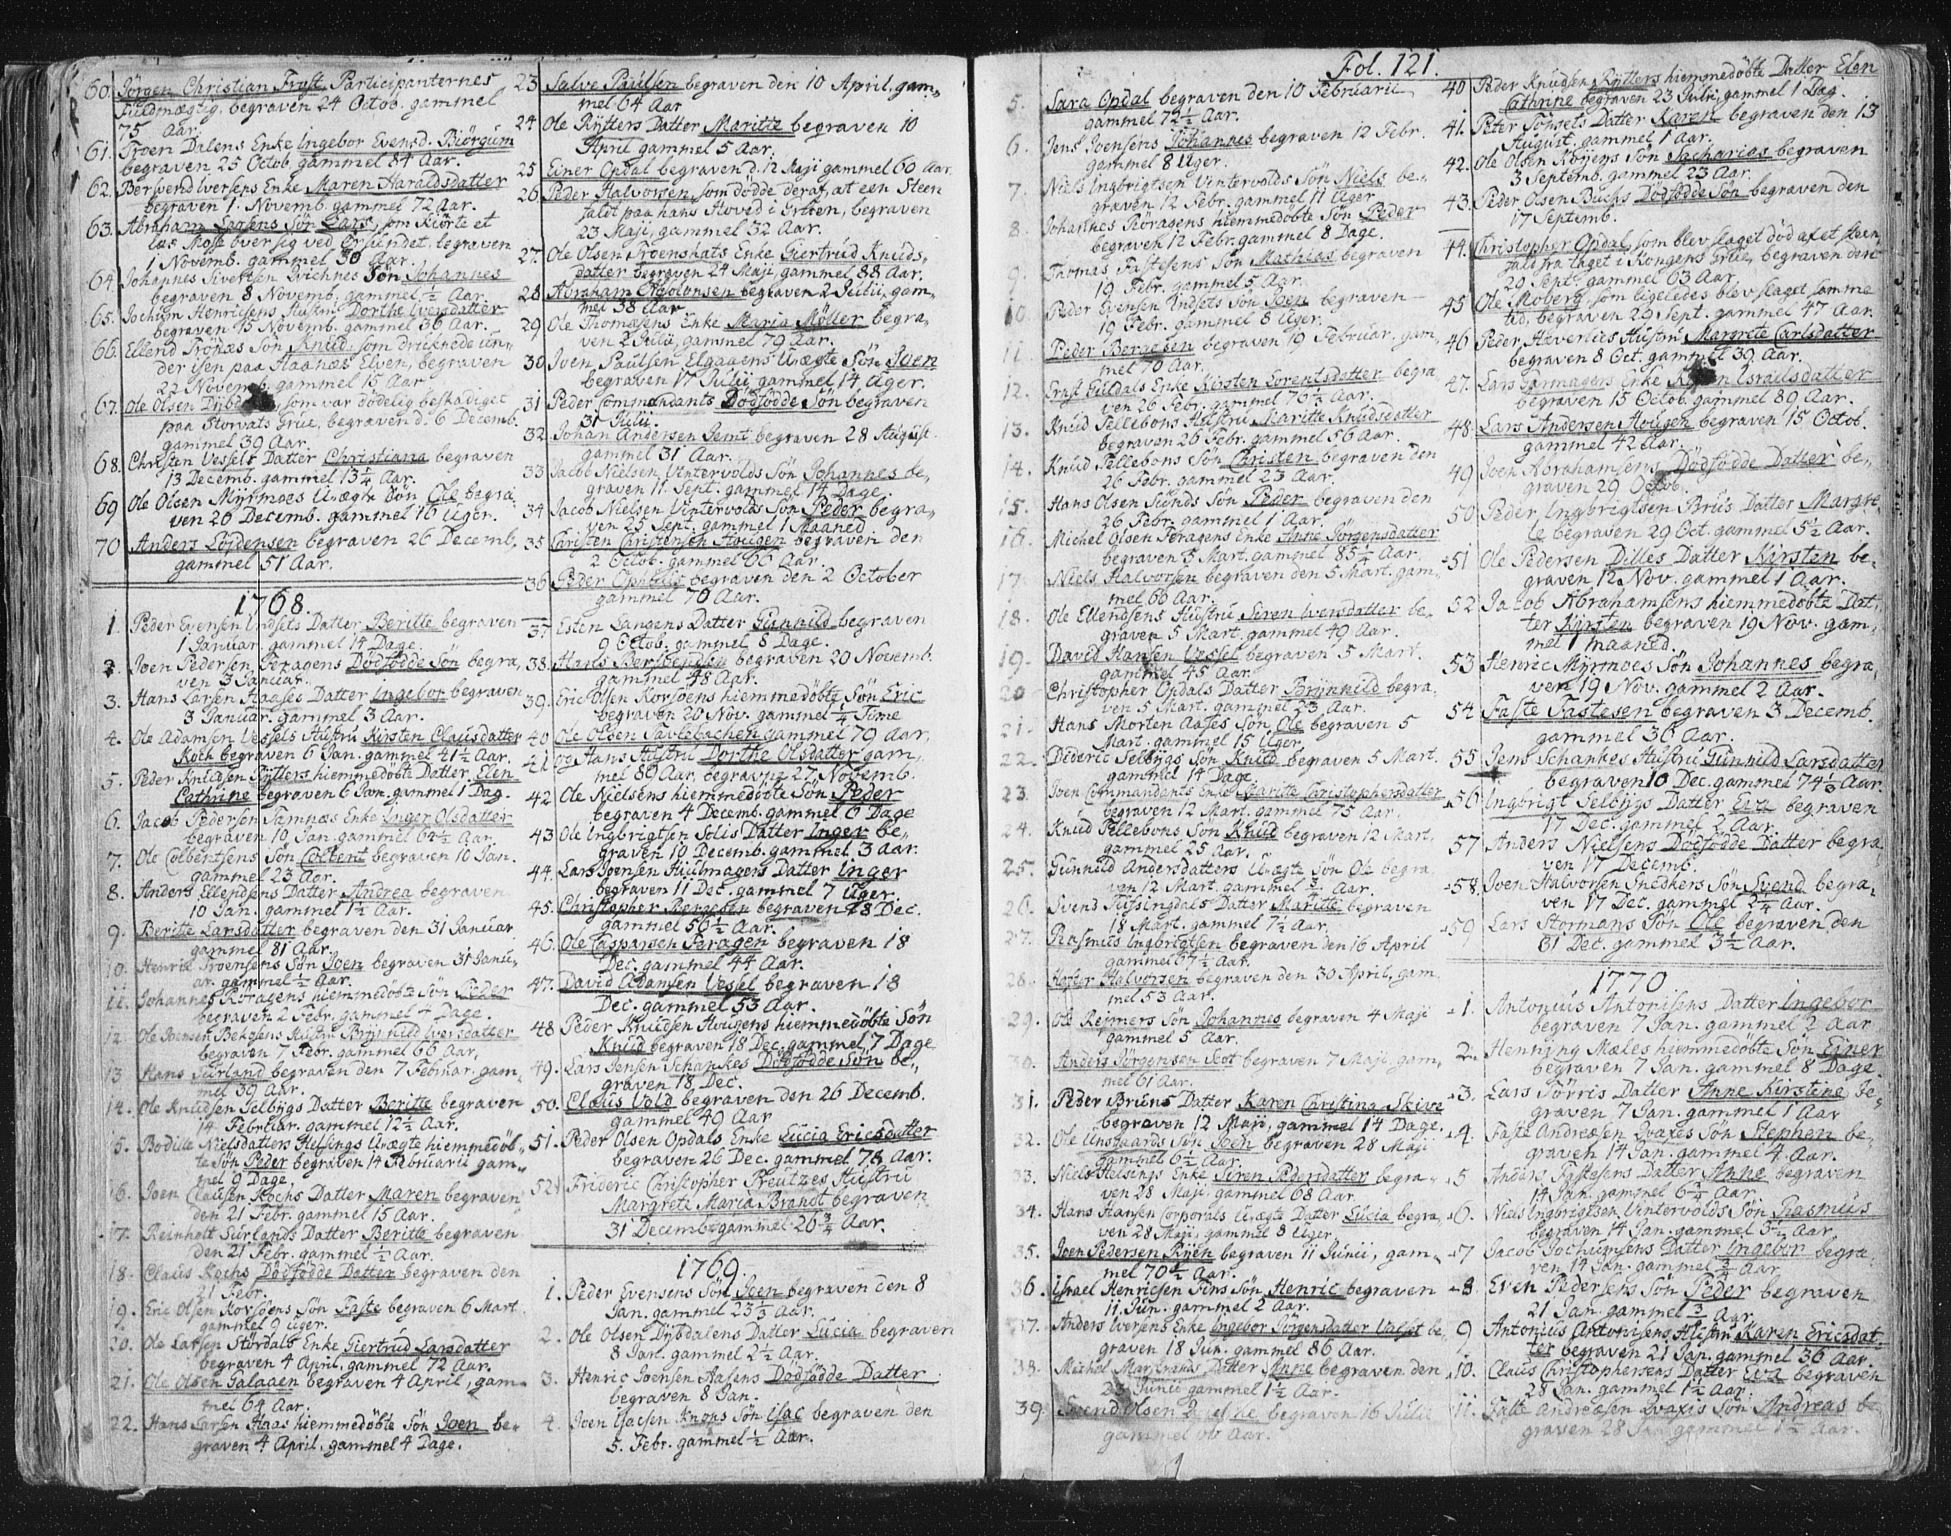 60. Jørgen Christian Fryst, Participanternes
Fuldmægtig, begraven 24 Octob. gammel
75 Aar.
61. Troen Dalens Enke Ingebor Evensd. Biörgum
begraven 25 Octob. gammel 84 Aar.
62. Berswend Iversens Enke Maren Haraldsdatter
begraven 1. Novemb. gammel 72 Aar.
63. Abraham Larsens Sön Lars, som kiörte et
las Mose over sig ved Örsundet, begraven
1 Novemb. gammel 30 Aar.
64 Johannes Sivertsen Sön Johannes
begraven 8 Novemb. gammel ½ Aar.
65. Jochum Henricsens Hustru Dorthe Iversdatter
begraven 15 Novemb. gammel 36 Aar.
66. Ellend Trönæs Sön Knud, som druknede un-
der isen paa Haanæs Elven, begraven
22 Novemb. gammel 15 Aar
67. Ole Olsen som var dödelig beskadiget
paa Storvats Grue, begraven d. 6 Decemb.
gammel 39 Aar.
68. Christen Vessels Datter Christiana begraven
13 Decemb. gammel 13¼ Aar.
69 Ole Olsen Myrmoes Uægte Sön Ole begra-
ven 26 Decemb. gammel 16 Uger.
70 Anders Löjdensen begraven 26 Decemb.
gammel 51 Aar.
1768.
1. Peder Evensen Undsets Datter Beritte begraven
1 Januar. gammel 14 Dage
2. Joen Pedersen Feragens Dödfödde Sön begra,
ven 3 Januar.
3. Hans Larsen Haases Datter Ingebor begraven
3 Januar. gammel 3 Aar.
4. Ole Adamsen Vessels Hustru Kirsten Clausdatter
Koch begraven 6 Jan. gammel 41½ Aar.
5. Peder Knudsen Rytters hiemmedöbte Datter Elen
Cathrine begraven 6 Jan. gammel 1 Dag.
6. Jacob Pedersen Tamnæs Enke Inger Olsdatter
begraven 10 Jan. gammel 64½ Aar.
7. Ole Colbentsens Sön Colbent begraven 10 Jan.
gammel 23 Aar.
8. Anders Ellendsens Datter Andrea begraven
10 Jan. gammel 1½ Aar.
9. Beritte Larsdatter begraven den 31 Januar
gammel 81 Aar.
10. Henric Troensens Sön Joen begraven 31 Janu-
ar. gammel ½ Aar.
11. Johannes Röragens hiemmedöbte Sön Peder
begraven 2 Febr. gammel 4 Dage.
12. Ole Joensen Bekosens Hustru Brynnild Iversdatter
begraven 7 Febr. gammel 66 Aar.
13 Hans Surland begraven den 7 Februar. gam-
mel 39 Aar.
14. Ole Knudsen Selbygs Datter Beritte begraven
14 Februar. gammel 12½ Aar.
5. Bodille Nielsdatters Helsings Uægte hiemmedöb-
te Sön Peder begraven 14 Februarii gam-
mel 9 Dage.
16. Joen Clausen Kochs Datter Maren begraven
den 21 Febr. gammel 15 Aar.
17. Reinholt Surlands Datter Beritte begraven
den 21 Febr. gammel ½ Aar.
18. Claus Kochs Dödfödde Datter begraven den
21 Febr.
19. Eric Olsen Korsöens Sön Faste begraven 6 Mart.
gammel 9 Uger.
20. Ole Larsen Stördals Enke Giertrud Larsdatter
begraven 4 April, gammel 72 Aar.
21. Ole Olsen Galaaen begraven 4 April, gam-
mel 64 Aar.
22. Hans Larsen Haas hiemmedöbte Sön Joen be-
graven 4 April. gammel 4 Dage.
23 Salve Paulsen begraven den 10 April. gam-
mel 64 Aar
24 Ole Rytters Datter Maritte begraven 10
April gammel 5 Aar.
25 Einer Opdal begraven d. 12 Maji gammel 60 Aar.
26 Peder Halvorsen, som dödde deraf, at een Steen
falt paa hans Hoved i Gruen, begraven
23 Maji, gammel 32 Aar.
27. Ole Olsen Troenshats Enke Giertrud Knuds-
datter begraven 24 Maji, gammel 88 Aar.
28. Abraham begraven 2 Julii, gam-
mel 38 Aar
29. Ole Thomæsens Enke Maria Möller begra-
ven 2 Julii, gammel 79 Aar.
30. Joen Paulsen Elgaaens Uægte Sön Joen
begraven 17 Julii, gammel 14 Uger.
31 Peder Commandants Dödfödde Sön begraven
31 Julii.
32. Johan Andersen Jemt begraven 28 August.
gammel 31 Aar.
33 Jacob Nielsen Vintervolds Sön Johannes be-
graven 11. Sept. gammel 14 Dage
34 Jacob Nielsen Vintervolds Sön Peder begra-
ven 25 Sept. gammel 1 Maaned
35. Christen Christensen Hougen begraven den
2 Octob. gammel 66 Aar.
36 Peder begraven den 2 October
gammel 70 Aar.
37. Esten Langens Datter Gunnild begraven
9 Octob. gammel 8 Dage.
38. Hans Berswendsen begraven 20 Novemb.
gammel 48 Aar.
39. Eric Olsen Korsöens hiemmedöbte Sön Eric
begraven 20 Nov. gammel ¼ Time
40 Ole Olsen Savlebachen gammel 79 Aar,
41 og Hans Hustru Dorthe Olsdatter gam-
mel 80 Aar, begravne 27 Novemb.
42 Ole Nielsens hiemmedöbte Sön Peder
begraven 4 Decemb. gammel 6 Dage
43. Ole Ingbrigtsen Solis Datter Inger be-
graven 10 Decemb. gammel. 3 Aar.
44. Lars Joensen Huulmagers Datter Inger
begraven 11 Dec. gammel 7 Uger.
45. Christopher Bergeben begraven 18 Dec.
gammel 56½ Aar.
46. Ole Caspersen Feragen begraven 18
Dec. gammel 44 Aar.
47. David Adamsen Vessel begraven 18
Dec. gammel 53 Aar.
48 Peder Knudsen Hougens hiemmedöbte Sön
Knud begraven 18 Dec. gammel 7 Dage
49. Lars Jensen Schankes Dödfödde Sön be-
graven 18 Dec.
50. Claus Vold begraven den 26 Decemb.
gammel 49 Aar
51. Peder Olsen Opdals Enke Lucia Ericsdatter
begraven 26 Dec. gammel 78 Aar.
52. Frideric Christopher Preutzes Hustru
Margrete Maria Brandt begraven
31 Decemb. gammel 26¾ Aar.
1769.
1. Peder Evensens Sön Joen begraven den 8
Jan. gammel 23⅓ Aar.
2. Ole Olsen Dybdalens Datter Lucia begraven
8 Jan. gammel 2½ Aar.
3. Henric Joensen Aasens Dödfödde Datter
begraven 8 Jan.
4. Joen Isacsen Knops Sön Isac begraven den
5. Febr. gammel ½ Aar.
Fol. 121.
5. Sara Opdal begraven den 10 Februarii
gammel 72½ Aar.
6. Jens Joensens Johannes begraven 12 Febr.
gammel 8 Uger.
7. Niels Ingbrigtsen Vintervolds Sön Niels be-
graven 12 Febr. gammel 11 Uger
8. Johannes Röragens hiemmedöbte Sön Peder
begraven 12 Febr. gammel 8 Dage.
9. Thomas Fastesens Sön Mathias begraven
19 Febr. gammel 5 Aar.
10. Peder Evensen Undsets Sön Joen begraven
19 Febr. gammel 8 Uger.
11 Peder Bergeben begraven 19 Februar, gam-
mel 70 Aar.
12. Ernst Fuldals Enke Kirsten Lorentsdatter begra
ven 26 Febr. gammel 70¾ Aar.
13. Knud Tellebons Hustru Maritte Knudsdatter
begraven 26 Febr. gammel 56 Aar.
14. Knud Tellebons Sön Christen begraven den
26 Febr. gammel 23 Aar.
15. Hans Olsen Sunds Sön Peder begraven den
26 Febr. gammel 1 Aar.
16. Michel Olsen Feragens Enke Anne Jörgensdatter
begraven 5 Mart. gammel 85¼ Aar.
17. Niels Halvorsen begraven den 5 Mart. gam-
mel 66 Aar.
18. Ole Ellendsens Hustru Siren Iversdatter be-
graven 5 Mart. gammel 49 Aar.
19. David Hansen Vessel begraven 5 Mart.
gammel 45 Aar.
20 Christopher Opdals Datter Brynnild begra-
ven 5 Mart. gammel 23 Aar.
21. Hans Morten Aases Sön Ole begraven 5
Mart. gammel 15 Uger.
22. Dideric Selbygs Sön Knud begraven 5 Mart.
gammel 14 Dage.
23. Joen Commandants Enke Maritte Christophersdatter
begraven 12 Mart. gammel 75 Aar.
24. Knud Tellebons Sön Knud begraven 12 Mart.
gammel 25 Aar.
25. Gunnild Andersdatters Uægte Sön Ole begra
ven 12 Mart. gammel ¾ Aar.
26. Svend Tufsingdals Datter Maritte begraven
18 Mart. gammel 7½ Aar.
27. Rasmus Ingbrigtsen begraven den 16 April
gammel 67½ Aar.
28. Halvorsen begraven den 30 April, gam-
mel 53 Aar.
29. Ole Reimers Sön Johannes begraven 4 Maji
gammel 5 Aar.
30. Anders Jörgensen Scot begraven 7 Maji, gam-
mel 61 Aar.
31. Peder Bruns Datter Karen Christina Skive
begraven 12 Maji, gammel 14 Dage.
32. Ole Unsgaards Sön Joen begraven 28 Maji
gammel 6½ Aar.
33. Niels Helsings Enke Siren Pedersdatter begra-
ven 28 Maji, gammel 68 Aar.
34. Hans Hansen Corporals Uægte Datter Lucia begra-
ven 28 Maji, gammel 3 Uger.
35. Joen Pedersen Ryen begraven 11 Junii, gam-
mel 70½ Aar.
36. Israel Henricsen Fins Sön Henric begraven
11 Jun. gammel 2 Aar.
37. Anders Iversens Enke Ingebor Jörgensdatter be-
graven 18 Jun. gammel 86 Aar.
38. Michel Datter Anne begraven den
25 Junii gammel 1½ Aar.
39. Svend Olsen begraven 16 Julii
gammel Aar.
40 Peder Knudsen Rytters hiemmedöbte Datter Elen
Cathrine begraven 23 Julii, gammel 1 Dag.
41. Peter Tönsets Datter Karen begraven den 13
August. gammel 1 Aar.
42. Ole Olsen Sön Sacharias begraven
3 Septemb. gammel 23 Aar.
43. Peder Olsen Buchs Dödfödde Sön begraven den
17 Septemb.
44. Christopher Opdal, som blev slaget död af et steen-
fald fra taget i Kongens Grue, begraven den
29 Sept. gammel 63 Aar
45 Ole Moberg, som ligeledes blev slaget samme
tid, begraven 29 Sept. gammel 47 Aar.
46 Peder Haverlies Hustru Margrete Carlsdatter
begraven 8 Oct. gammel 39 Aar.
47. Lars Garmagers Enke Israelsdatter
begraven 15 Octob. gammel 89 Aar.
48. Lars Andersen Hougen begraven 15 Octob.
gammel 42 Aar.
49 Joen Abrahamsens Dödfödde Datter be-
graven 29 Octob.
50. Peder Ingbrigtsen Brus Datter Margre-
te begraven 29 Oct. gammel 5½ Aar.
51 Ole Pedersen Dilles Datter Kirsten be-
graven 12 Nov. gammel 1 Aar.
52. Jacob Abrahamsens hiemmedöbte Dat-
ter Kirsten begraven 19 Nov. gam-
mel 1 maaned.
53 Henric Myrmoes Sön Johannes begra-
ven 19 Nov. gammel 2 Aar.
54 Faste Fastesen begraven 3 Decemb.
gammel 36 Aar.
55 Jens Schankes Hustru Gunnild Larsdatter
begraven 10 Dec. gammel 74⅓ Aar.
56 Ingbrigt Selbygs Datter Eva begraven
17 Dec. gammel 2 Aar.
57 Anders Nielsens Dödfödde Datter begra
ven 17 Decemb.
58. Joen Halvorsen Snedkers Sön Svend begra-
ven 17 Dec. gammel 2¼ Aar.
59 Lars Stormans Sön Ole begraven den
31 Dec. gammel 3½ Aar.
1770
1. Antonius Antonisens Datter Ingebor
begraven 7 Jan. gammel 2 Aar
2. Henning Mæles hiemmedöbte Sön Einer
begraven 7 Jan. gammel 8 Dage.
3. Lars Törris Datter Anne Kirstine be-
graven 7 Jan. gammel 1 Aar
4. Faste Andreasen Qvaxes Sön Stephen be-
graven 14 Jan. gammel 4 Aar.
5 Anders Fastesens Datter Anne begraven
14 Jan. gammel 6¾ Aar.
6. Niels Ingbrigtsen Vintervolds Sön Rasmus
begraven 14 Jan. gammel 3½ Aar.
7 Jacob Jochumsens Datter Ingebor begra-
ven 14 Jan. gammel ¾ Aar.
8 Even Pedersens Sön Peder begraven
21 Jan. gammel ¾ Aar.
9 Antonius Antonisens Hustru Karen Ericsdat-
ter begraven 21 Jan. gammel 36 Aar.
10. Claus Christophersens Datter Eva begraven
28 Jan. gammel 1½ Aar.
11. Faste Andreasen Qvaxis Sön Andreas be-
graven 28 Jan gammel 1½ Aar.